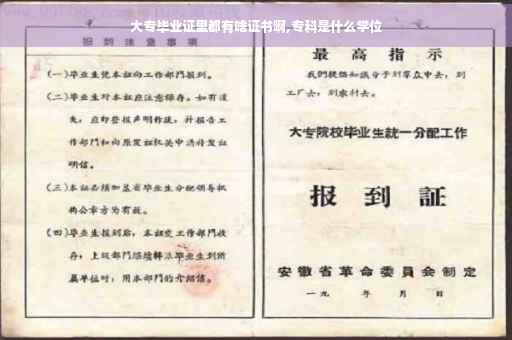 大专毕业证里都有啥证书啊,专科是什么学位
报到注意事项
(一)毕业生凭本证向工作部門报到。
(二)毕业生对本证应注意保存。如有遗
失,应即登报声明作废,并报告工
作部門和向原发证机关申請补发证
明信。
(三)本证必须加盖省毕业生分配领导机
构公章方为有效。
(四)毕业生报到后,本证交工作部門收
存;上级部門
屬单位时,用本部門的介绍信。
最高指示
我們提倡知識分子到群众中去,到
工厂去,到农村去。
大专院校毕业生統一分配工作
报到証
安徽省革命委員会制定
一九 年 月 日